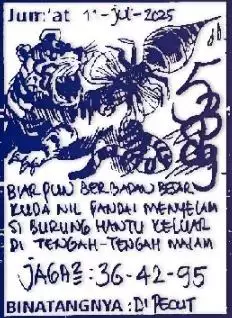 Jum'at 11-Jul-2025
BIAR PUN BERBADAN BESAR
KUDA NIL PANDAI MENYELAM
SI BURUNG HANTU KELUAR
DI TENGAH-TENGAH MALAM
JAGA²:36-42-95
BINATANGNYA : DI PECUT